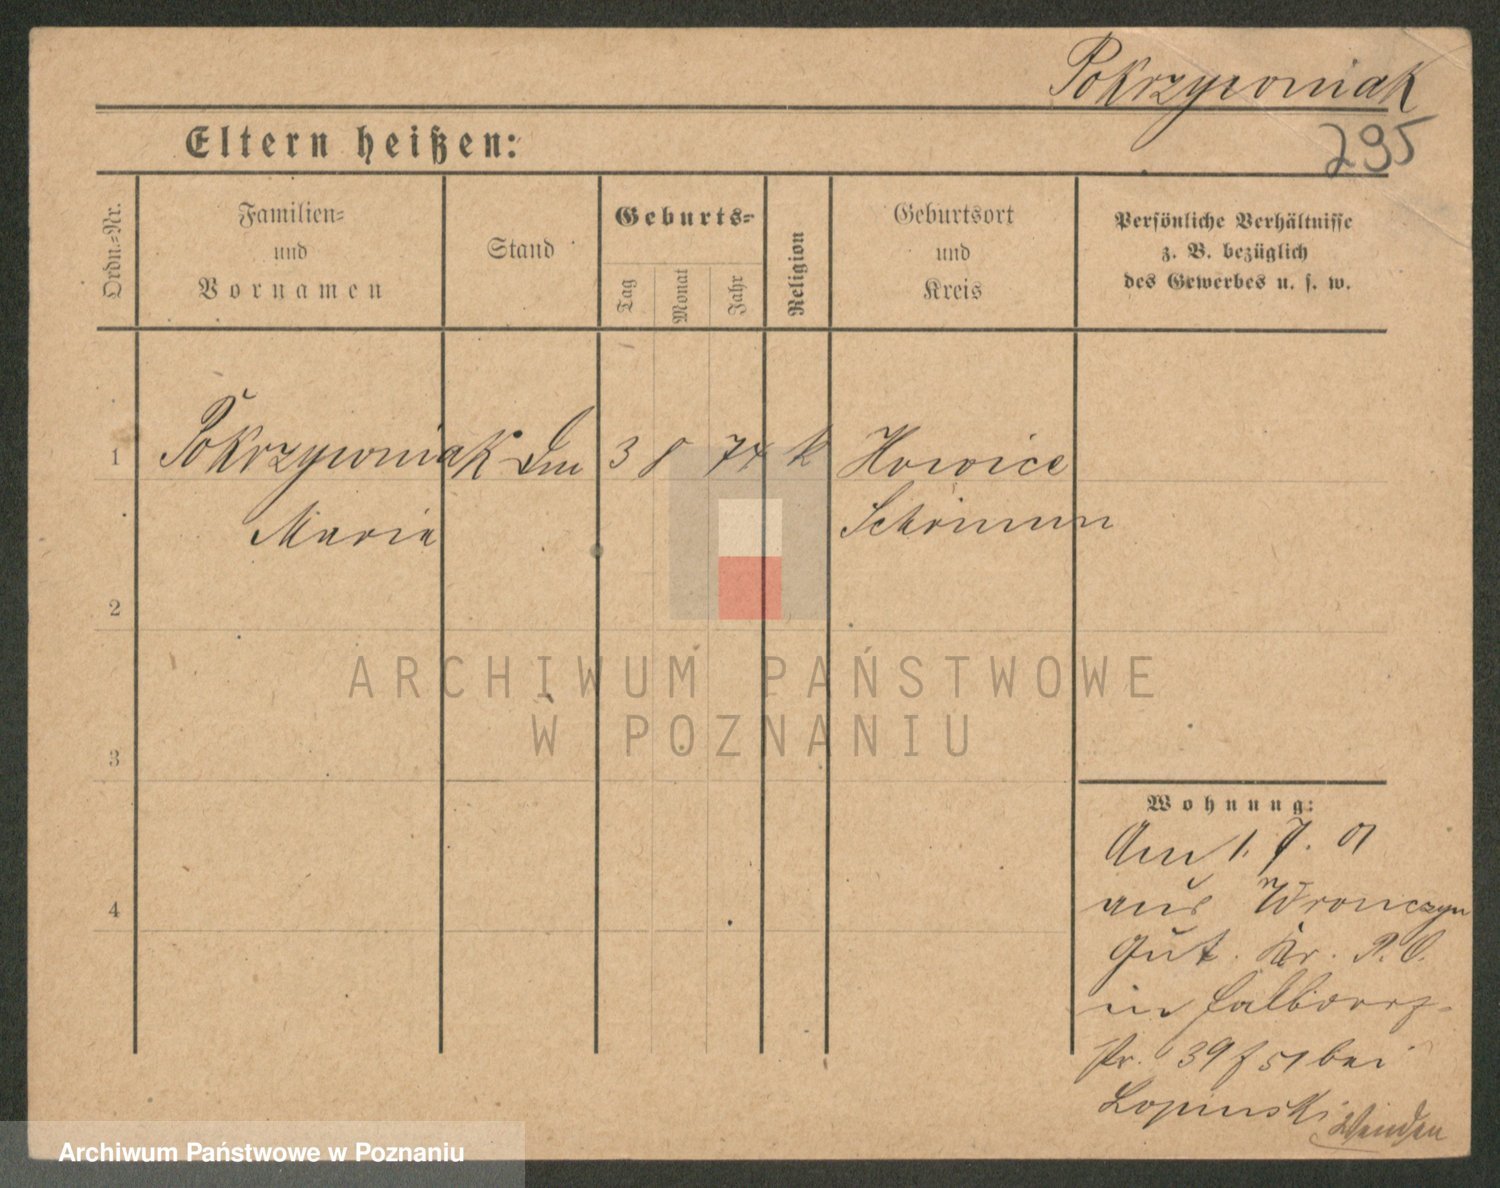 Pokrzywniak
295
Eltern heißen:
Ordn.-Nr.
Familien-
und
Vornamen
Stand
Geburts-
Tag
Monat
Jahr
Religion
Geburtsort
und
Kreis
Persönliche Verhältnisse
z. B. bezüglich
des Gewerbes u. s. w.
1
Pokrzywniak
3 8 74 k
Maria
Schrimm
2
3
4
Wohnung:
Am 1. 7. 01
aus Wronczyn
Gut. Kr. P. O.
in
39 bei
Lopinski
ARCHIWUM PAŃSTWOWE
W POZNANIU
Archiwum Państwowe w Poznaniu